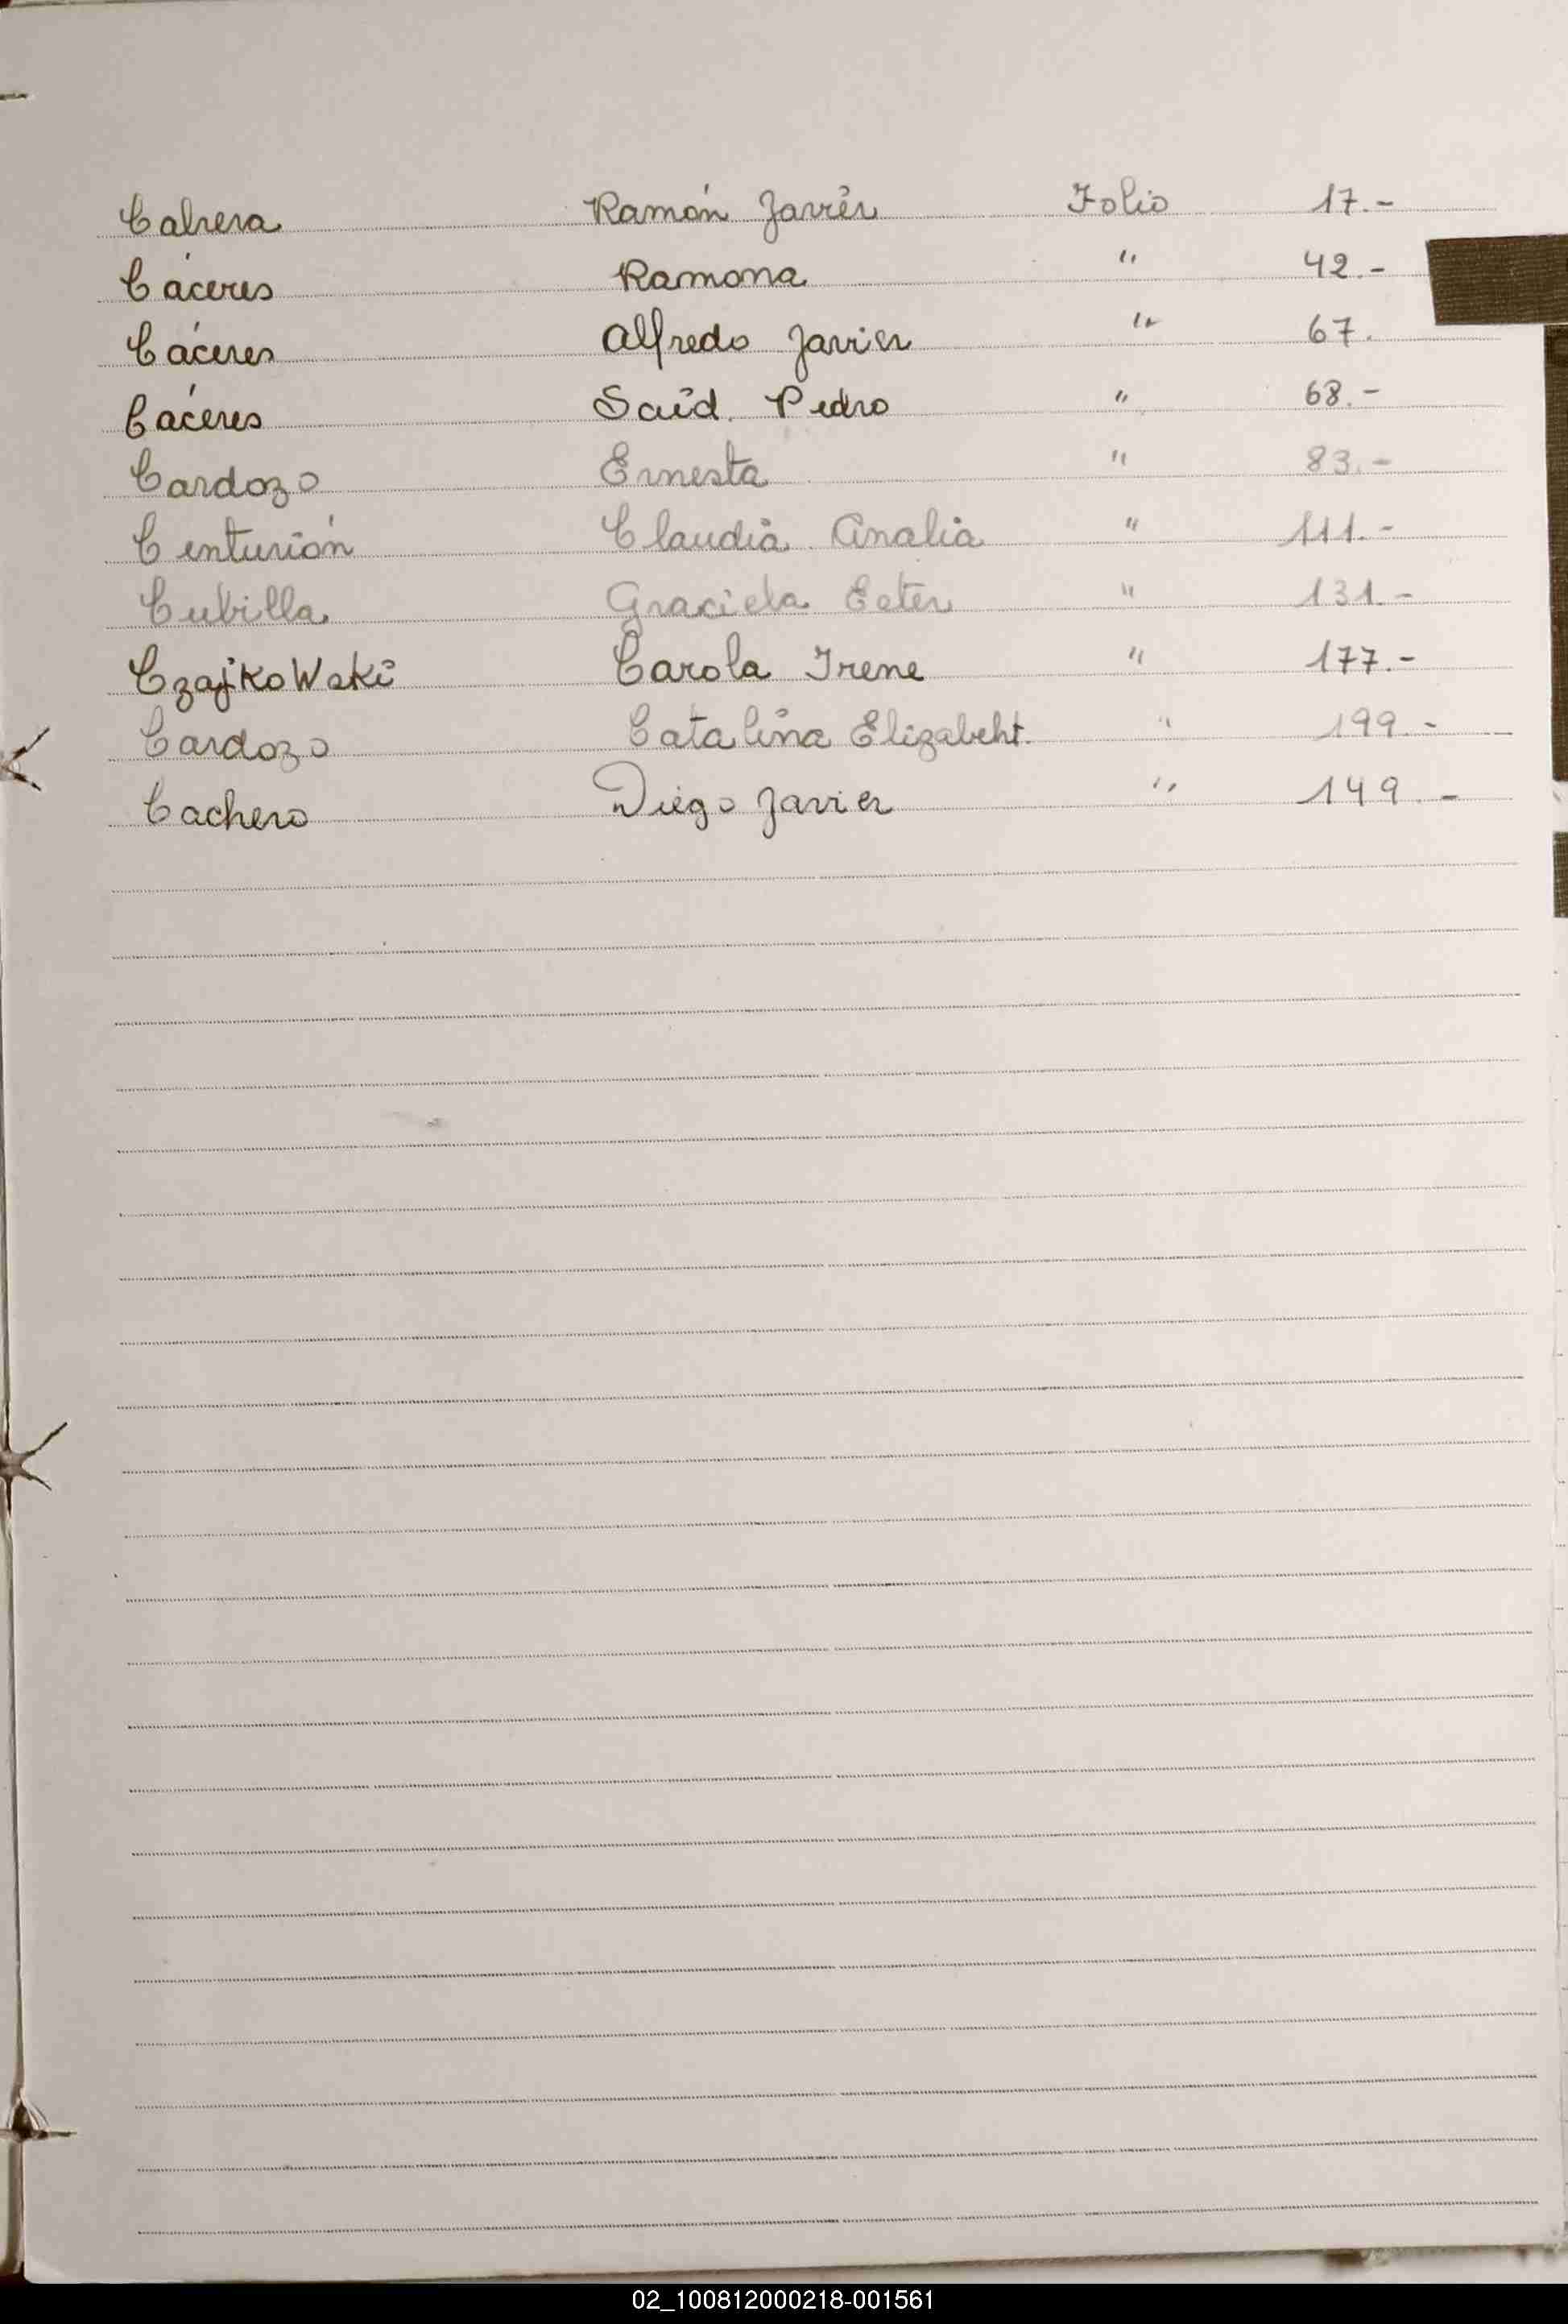 Cabrera Ramón Javier Folio 17.-
Cáceres Ramona " 42.-
Cáceres Alfredo Javier " 67.
Cáceres Saíd. Pedro " 68.-
Cardozo Ernesta " 83.-
Centurión Claudia Analia " 111.-
Cubilla Graciela Ester " 131.-
CzajkoWski Carola Irene " 177.-
Cardozo Catalina Elizabeht. " 199.-
Cachero Diego Javier " 149.-
02_100812000218-001561